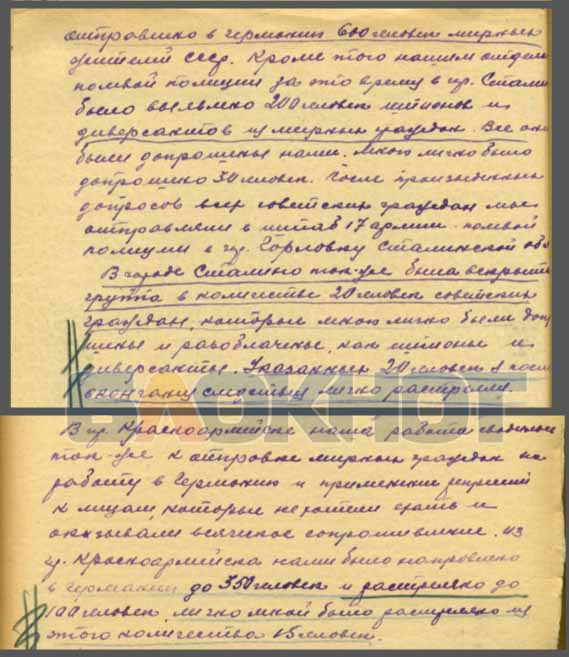 отправлено в германию 600 человек мирных
жителей ссср. Кроме того нашим отделом
полевой полиции за это время в гр. Стали
было выявлено 200 человек шпионов и
диверсантов из мирных граждан. Все они
были допрошены нами. Мною лично было
допрошено 30 человек. После произведенных
допросов всех советских граждан мы
отправляли в штаб 17 армии полевой
полиции в гр. Горловку Сталинской обл
В городе Сталино так-же была вскрыта
группа в количестве 20 человек советских
граждан, которые мною лично были допро
шены и разоблачены, как шпионы и
диверсанты. Указанных 20 человек я после
окончания следствия лично расстрелял.
БЛОКНОТ
В гр. Красноармейске наша работа сводилась
так-же к отправке мирных граждан на
работу в Германию и применении репрессий
к лицам, которые не хотели ехать и
оказывали всяческое сопротивление. Из
гр. Красноармейска нами было направлено
в германию до 350 человек и расстреляно до
100 человек, лично мной было расстреляно из
этого количества 15 человек.